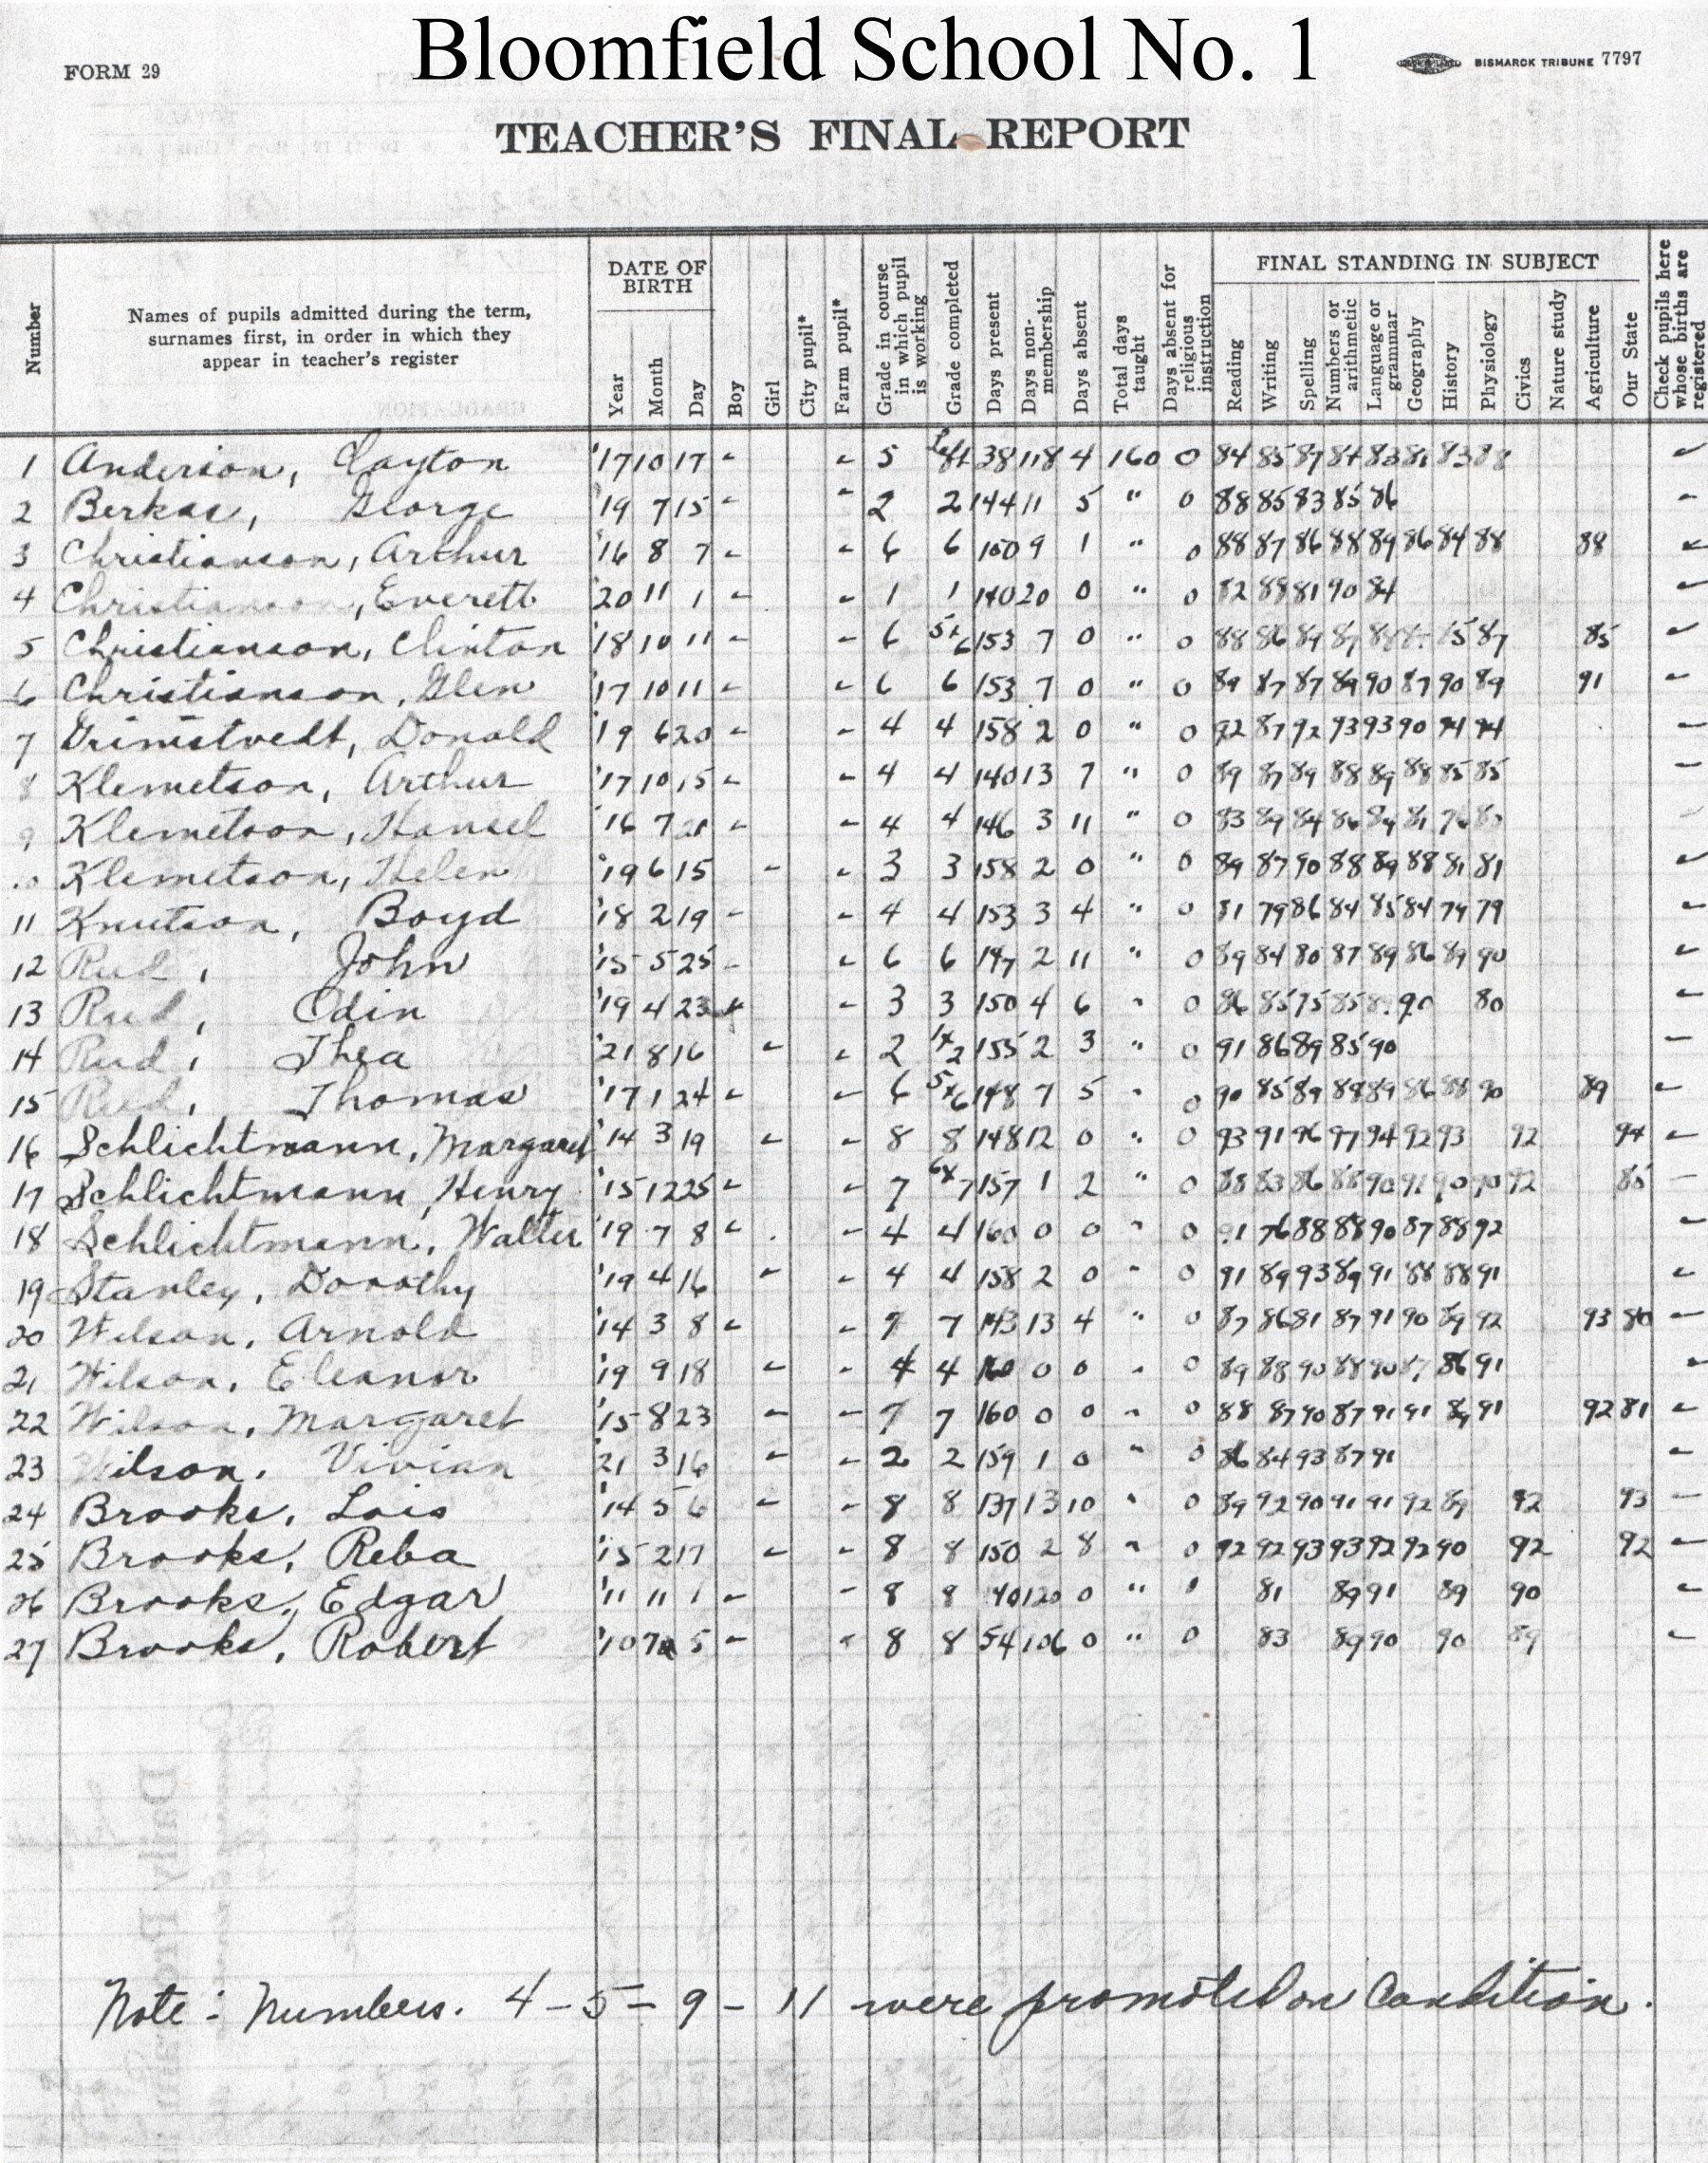 Bloomfield School No. 1
FORM 29
BISMARCK TRIBUNE 7797
TEACHER'S FINAL REPORT
Number
Names of pupils admitted during the term, surnames first, in order in which they appear in teacher's register
DATE OF BIRTH
Year
Month
Day
Boy
Girl
City pupil*
Farm pupil*
Grade in course in which pupil is working
Grade completed
Days present
Days non-membership
Days absent
Total days taught
Days absent for religious instruction
FINAL STANDING IN SUBJECT
Reading
Writing
Spelling
Numbers or arithmetic
Language or grammar
Geography
History
Physiology
Civics
Nature study
Agriculture
Our State
Check pupils here whose births are registered
1 Anderson, Clayton '17 10 17 5 38 118 4 160 0 84 85 87 84 83 81 83 88
2 Berkas, George '19 7 15 2 2 144 11 5 " 0 88 85 83 85 86
3 Christianson, Arthur '16 8 7 6 6 150 9 1 " 0 88 87 86 88 89 86 84 88 88
4 Christianson, Everett '20 11 1 1 1 140 20 0 " 0 82 88 81 90 84
5 Christianson, Clinton '18 10 11 6 153 7 0 " 0 88 86 89 87 88 85 87 85
6 Christianson, Glen '17 10 11 6 6 153 7 0 " 0 89 87 87 89 90 87 90 89 91
7 Grimstvedt, Donald '19 6 20 4 4 158 2 0 " 0 92 87 92 93 93 90 94 94
8 Klemetson, Arthur '17 10 15 4 4 140 13 7 " 0 89 87 89 88 89 88 85 85
9 Klemetson, Hansel '16 7 21 4 4 146 3 11 " 0 83 89 84 86 84 81 76
10 Klemetson, Helen '19 6 15 3 3 158 2 0 " 0 89 87 90 88 89 88 81 81
11 Knutson, Boyd '18 2 19 4 4 153 3 4 " 0 81 79 86 84 85 84 79 79
12 Rud, John '15 5 25 6 6 147 2 11 " 0 89 84 80 87 89 86 89 90
13 Rud, Odin '19 4 23 3 3 150 4 6 " 0 86 85 75 85 90 80
14 Rud, Thea '21 8 16 2 1+2 155 2 3 " 0 91 86 89 85 90
15 Rud, Thomas '17 1 24 6 5+6 148 7 5 " 0 90 85 89 89 89 86 88 90 89
16 Schlichtmann, Margaret '14 3 19 8 8 148 12 0 " 0 93 91 96 97 94 92 93 92 94
17 Schlichtmann, Henry '15 12 25 7 6+7 157 1 2 " 0 88 83 86 88 90 91 90 90 92 85
18 Schlichtmann, Walter '19 7 8 4 4 160 0 0 " 0 91 76 88 88 90 87 88 92
19 Stanley, Dorothy '19 4 16 4 4 158 2 0 " 0 91 89 93 89 91 88 88 91
20 Wilson, Arnold '14 3 8 7 7 143 13 4 " 0 87 86 81 87 91 90 89 92 93 80
21 Wilson, Eleanor '19 9 18 4 4 160 0 0 " 0 89 88 90 88 90 87 86 91
22 Wilson, Margaret '15 8 23 7 7 160 0 0 " 0 88 87 90 87 91 91 89 91 92 81
23 Wilson, Vivian '21 3 16 2 2 159 1 0 " 0 86 84 93 87 91
24 Brooks, Lois '14 5 6 8 8 137 13 10 " 0 89 92 90 91 91 92 89 92 93
25 Brooks, Reba '15 2 17 8 8 150 2 8 " 0 92 92 93 93 92 92 90 92 92
26 Brooks, Edgar '11 11 1 8 8 40 120 0 " 81 89 91 89 90
27 Brooks, Robert '10 7 5 8 8 54 106 0 " 0 83 89 90 90 89
Note: Numbers. 4 - 5 - 9 - 11 were promoted on Condition.